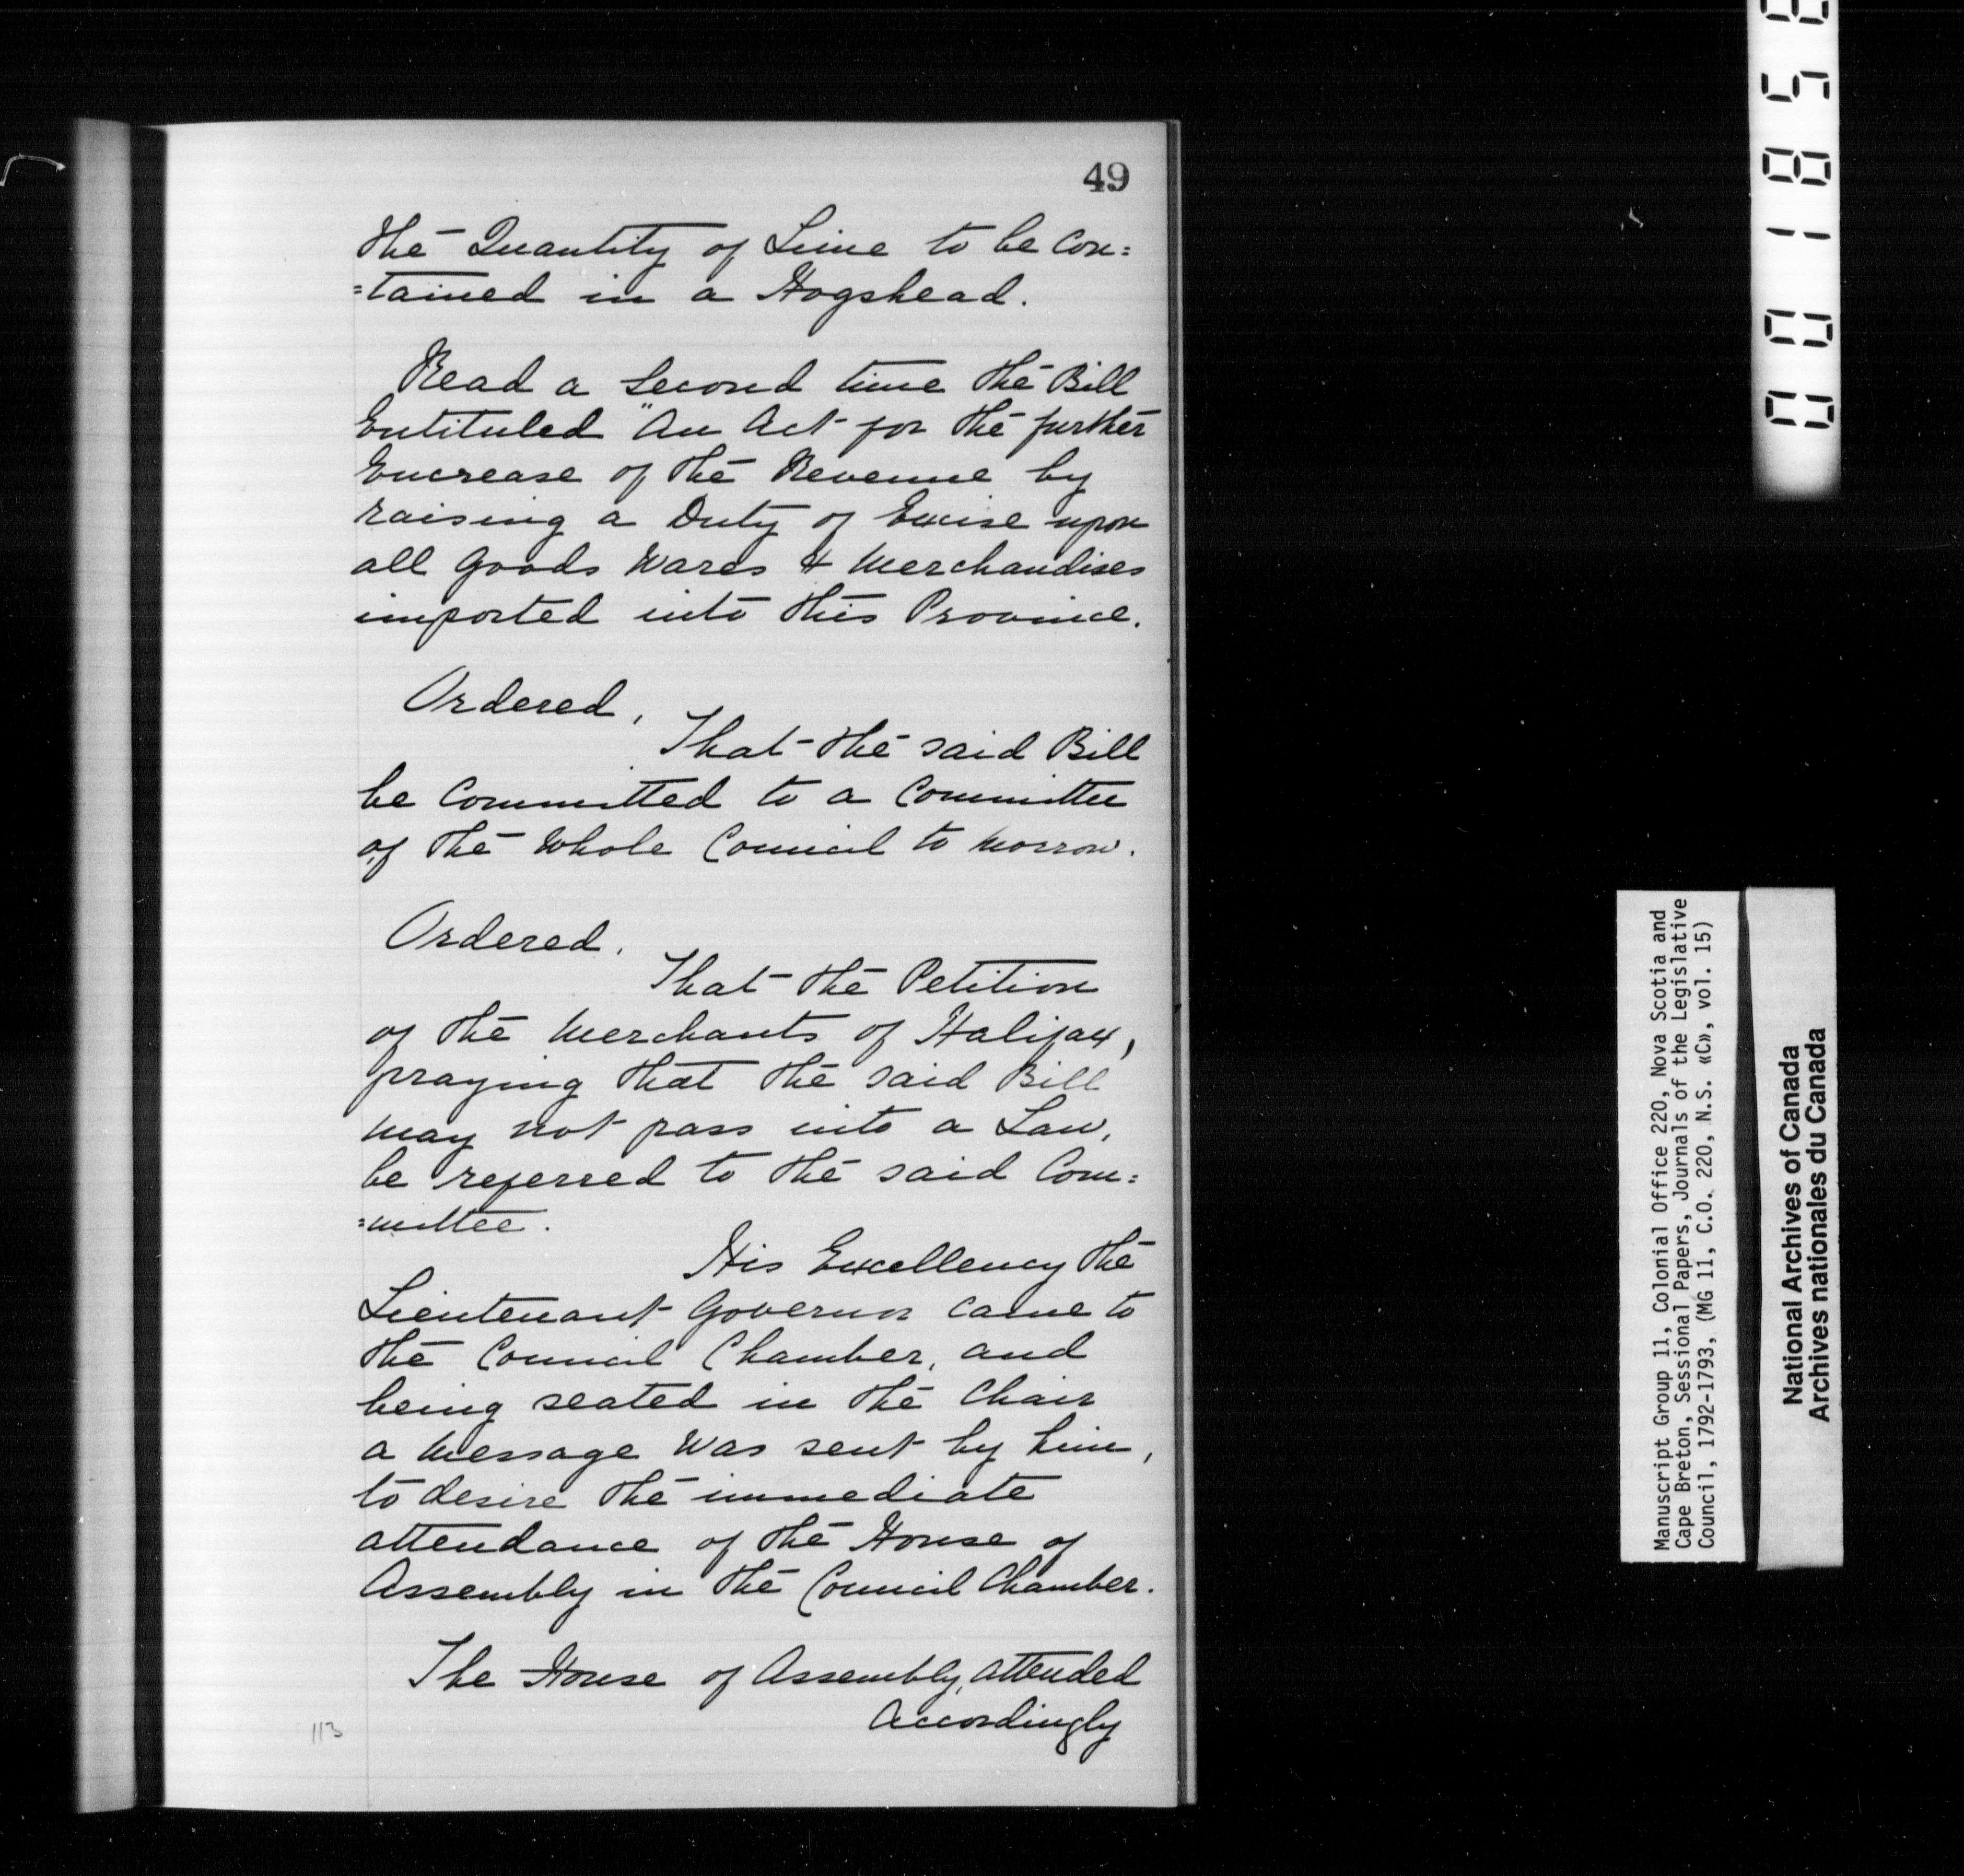 49
the Quantity of Lime to be Con=
=tained in a Hogshead.
Read a Second time the Bill
Entituled "An Act for the further
Encrease of the Revenue by
raising a Duty of Excise upon
all Goods Wares & Merchandises
imported into this Province.
Ordered,
That the said Bill
be Committed to a Committee
of the Whole Council to morrow.
Ordered.
That the Petition
of the Merchants of Halifax,
praying that the said Bill
may not pass into a Law,
be referred to the said Com=
=mittee.
His Excellency the
Lieutenant Governor came to
the Council Chamber, and
being seated in the Chair
a Message was sent by him,
to desire the immediate
attendance of the House of
Assembly in the Council Chamber.
The House of Assembly, attended
Accordingly
113
Manuscript Group 11, Colonial Office 220, Nova Scotia and
Cape Breton, Sessional Papers, Journals of the Legislative
Council, 1792-1793, (MG 11, C.O. 220, N.S. «C», vol. 15)
National Archives of Canada
Archives nationales du Canada